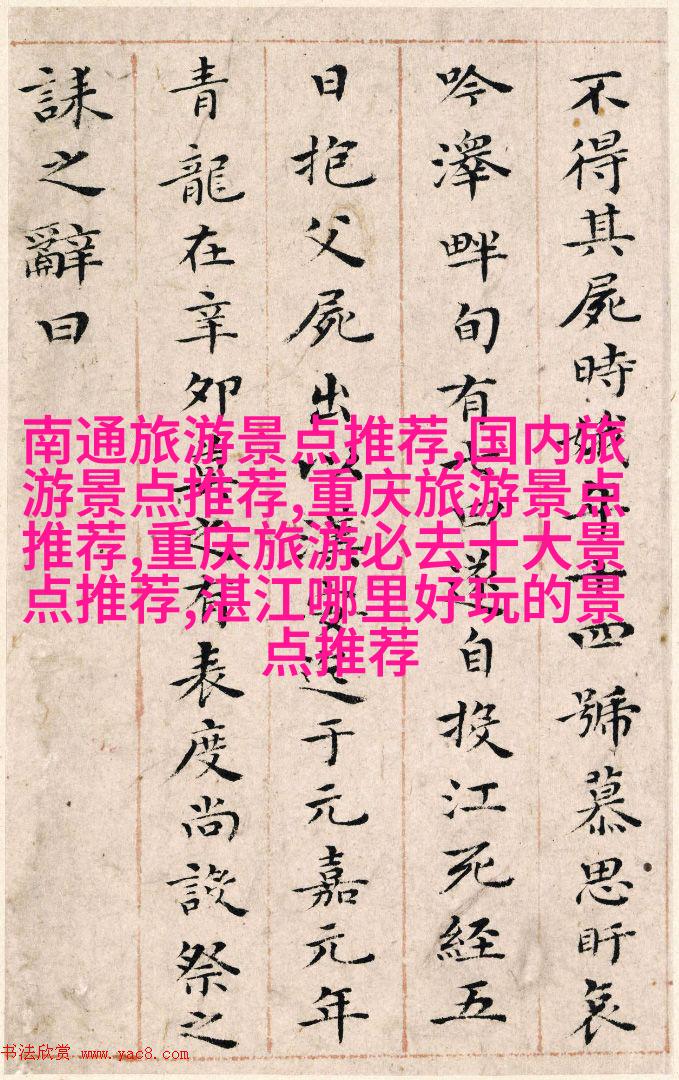 不得其屍時娥年十四號慕思盱哀
吟澤畔旬有七日遂自投江死經五
日抱父屍出以漢安迄于元嘉元年
青龍在辛卯莫之有表度尚設祭之
誄之辭曰
南通旅游景点推荐,国内旅
游景点推荐,重庆旅游景点
推荐,重庆旅游必去十大景
点推荐,湛江哪里好玩的景
点推荐
书法欣赏 www.yac8.com